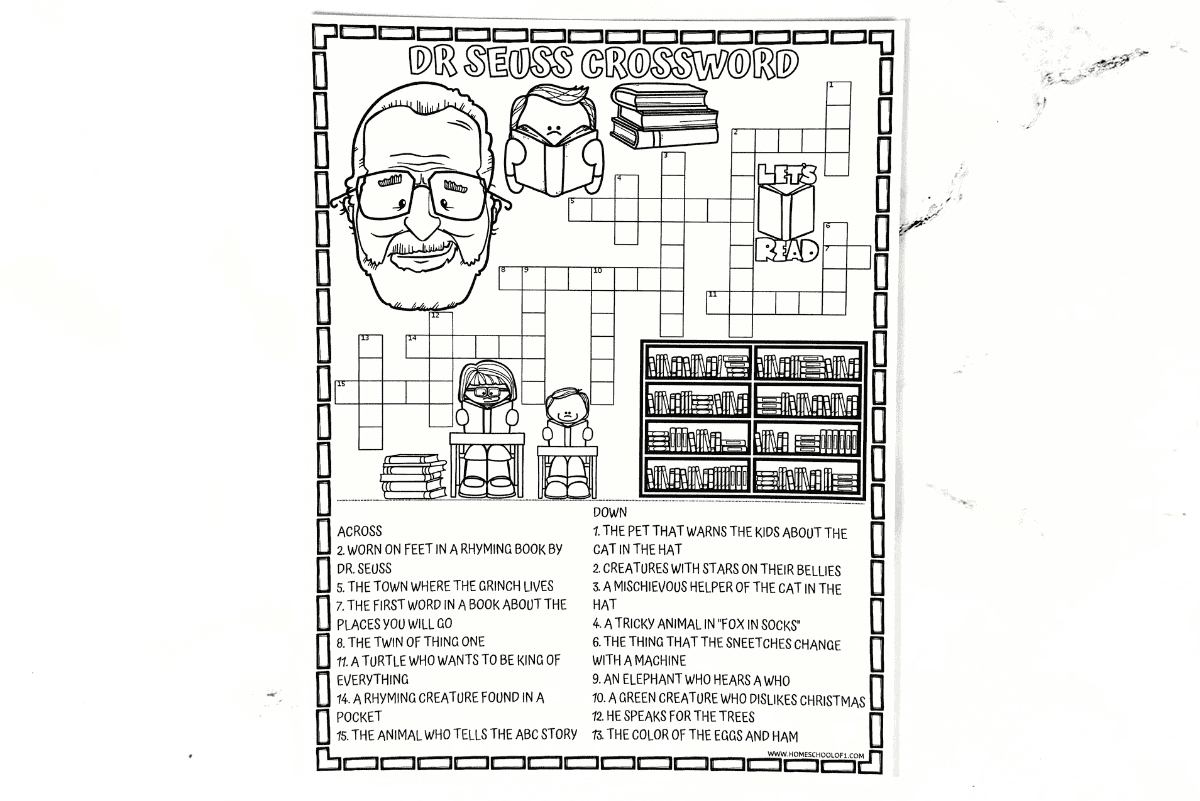 DR SEUSS CROSSWORD
1
2
3
LET'S
4
5
6
READ
7
8
9
10
11
12
13
14
15
ACROSS
2. WORN ON FEET IN A RHYMING BOOK BY
DR. SEUSS
5. THE TOWN WHERE THE GRINCH LIVES
7. THE FIRST WORD IN A BOOK ABOUT THE
PLACES YOU WILL GO
8. THE TWIN OF THING ONE
11. A TURTLE WHO WANTS TO BE KING OF
EVERYTHING
14. A RHYMING CREATURE FOUND IN A
POCKET
15. THE ANIMAL WHO TELLS THE ABC STORY
DOWN
1. THE PET THAT WARNS THE KIDS ABOUT THE
CAT IN THE HAT
2. CREATURES WITH STARS ON THEIR BELLIES
3. A MISCHIEVOUS HELPER OF THE CAT IN THE
HAT
4. A TRICKY ANIMAL IN "FOX IN SOCKS"
6. THE THING THAT THE SNEETCHES CHANGE
WITH A MACHINE
9. AN ELEPHANT WHO HEARS A WHO
10. A GREEN CREATURE WHO DISLIKES CHRISTMAS
12. HE SPEAKS FOR THE TREES
13. THE COLOR OF THE EGGS AND HAM
WWW.HOMESCHOOLOF1.COM